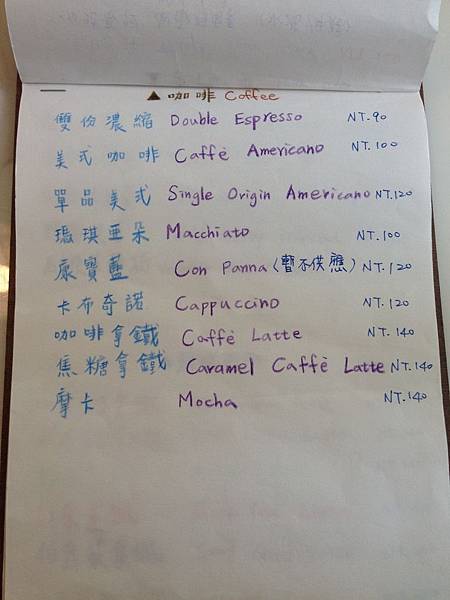 ▲ 咖啡 Coffee
雙份濃縮 Double Espresso NT.90
美式咖啡 Caffè Americano NT.100
單品美式 Single Origin Americano NT.120
瑪琪亞朵 Macchiato NT.100
康寶藍 Con Panna (暫不供應) NT.120
卡布奇諾 Cappuccino NT.120
咖啡拿鐵 Caffè Latte NT.140
焦糖拿鐵 Caramel Caffè Latte NT.140
摩卡 Mocha NT.140